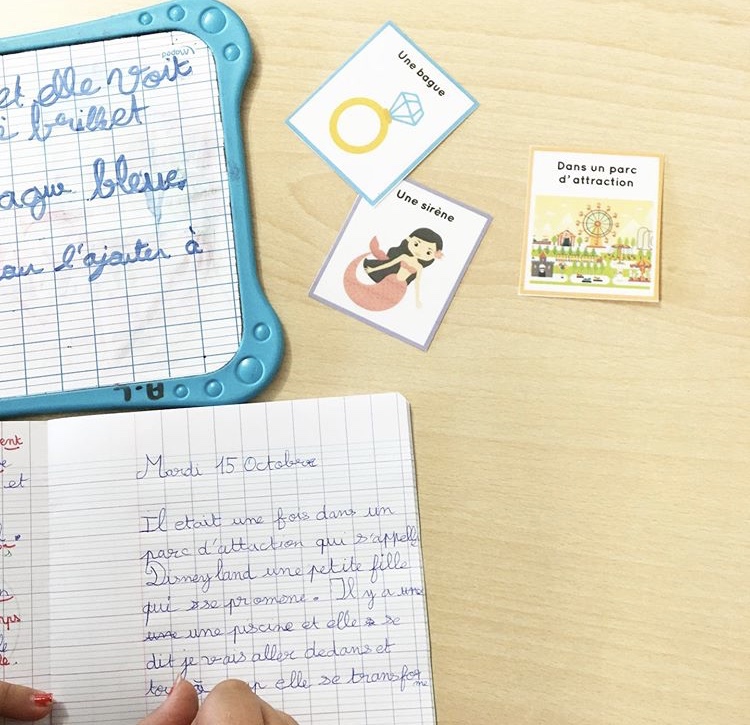 et elle voit
brillet
ague bleue,
l'ajouter à
A.L
Une bague
Une sirène
Dans un parc
d'attraction
ent
et
Mardi 15 Octobre
Il etait une fois dans un
parc d'attaction qui s'appelle
Disneyland une petite fille
qui se promene. Il y a une
une une piscine et elle se
dit je vais aller dedans et
elle se transfor
me